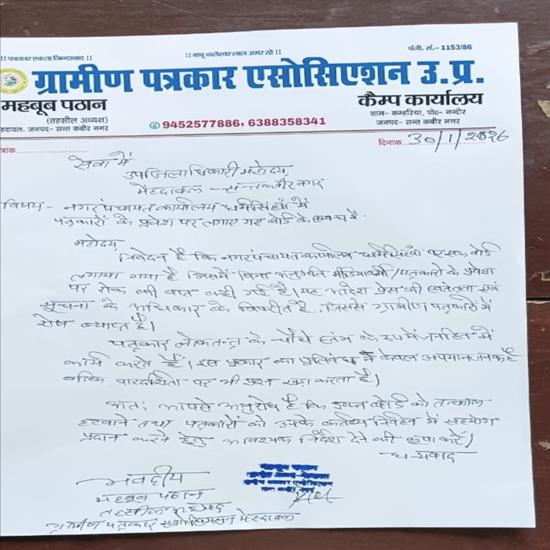 ।। पत्रकार एकता जिन्दाबाद ।।
।। बाबू बालेश्वर लाल अमर रहें ।।
पंजी. सं.- 1153/86
ग्रामीण पत्रकार एसोसिएशन उ.प्र.
महबूब पठान
(तहसील अध्यक्ष)
मेंहदावल, जनपद- सन्त कबीर नगर
9452577886, 6388358341
कैम्प कार्यालय
ग्राम- कम्हरिया, पो०- नन्दौर
जनपद- सन्त कबीर नगर
पत्रांक
दिनांक 30/1/2026
सेवा में
उपजिलाधिकारी महोदय,
मेंहदावल - सन्तकबीर नगर
विषय- नगर पंचायत कार्यालय धर्मसिंहवां में
पत्रकारों के प्रवेश पर लगाए गए बोर्ड के सम्बन्ध में
महोदय,
निवेदन है कि नगर पंचायत कार्यालय धर्मसिंहवां पर एक बोर्ड
लगाया गया है जिसमें बिना अनुमति मीडियाकर्मी/पत्रकारों के प्रवेश
पर रोक की बात कही गई है। यह आदेश प्रेस की स्वतंत्रता एवं
सूचना के अधिकार के विपरीत है, जिससे ग्रामीण पत्रकारों में
रोष व्याप्त है।
पत्रकार लोकतंत्र के चौथे स्तंभ के रूप में जनहित में
कार्य करते हैं। इस प्रकार का प्रतिबंध न केवल अपमानजनक है
बल्कि पारदर्शिता पर भी प्रश्न खड़ा करता है।
अतः आपसे अनुरोध है कि उक्त बोर्ड को तत्काल
हटवाने तथा पत्रकारों को उनके कर्तव्य निर्वहन में सहयोग
प्रदान करने हेतु आवश्यक निर्देश देने की कृपा करें।
धन्यवाद
भवदीय
महबूब पठान
तहसील अध्यक्ष
ग्रामीण पत्रकार एसोसिएशन मेंहदावल